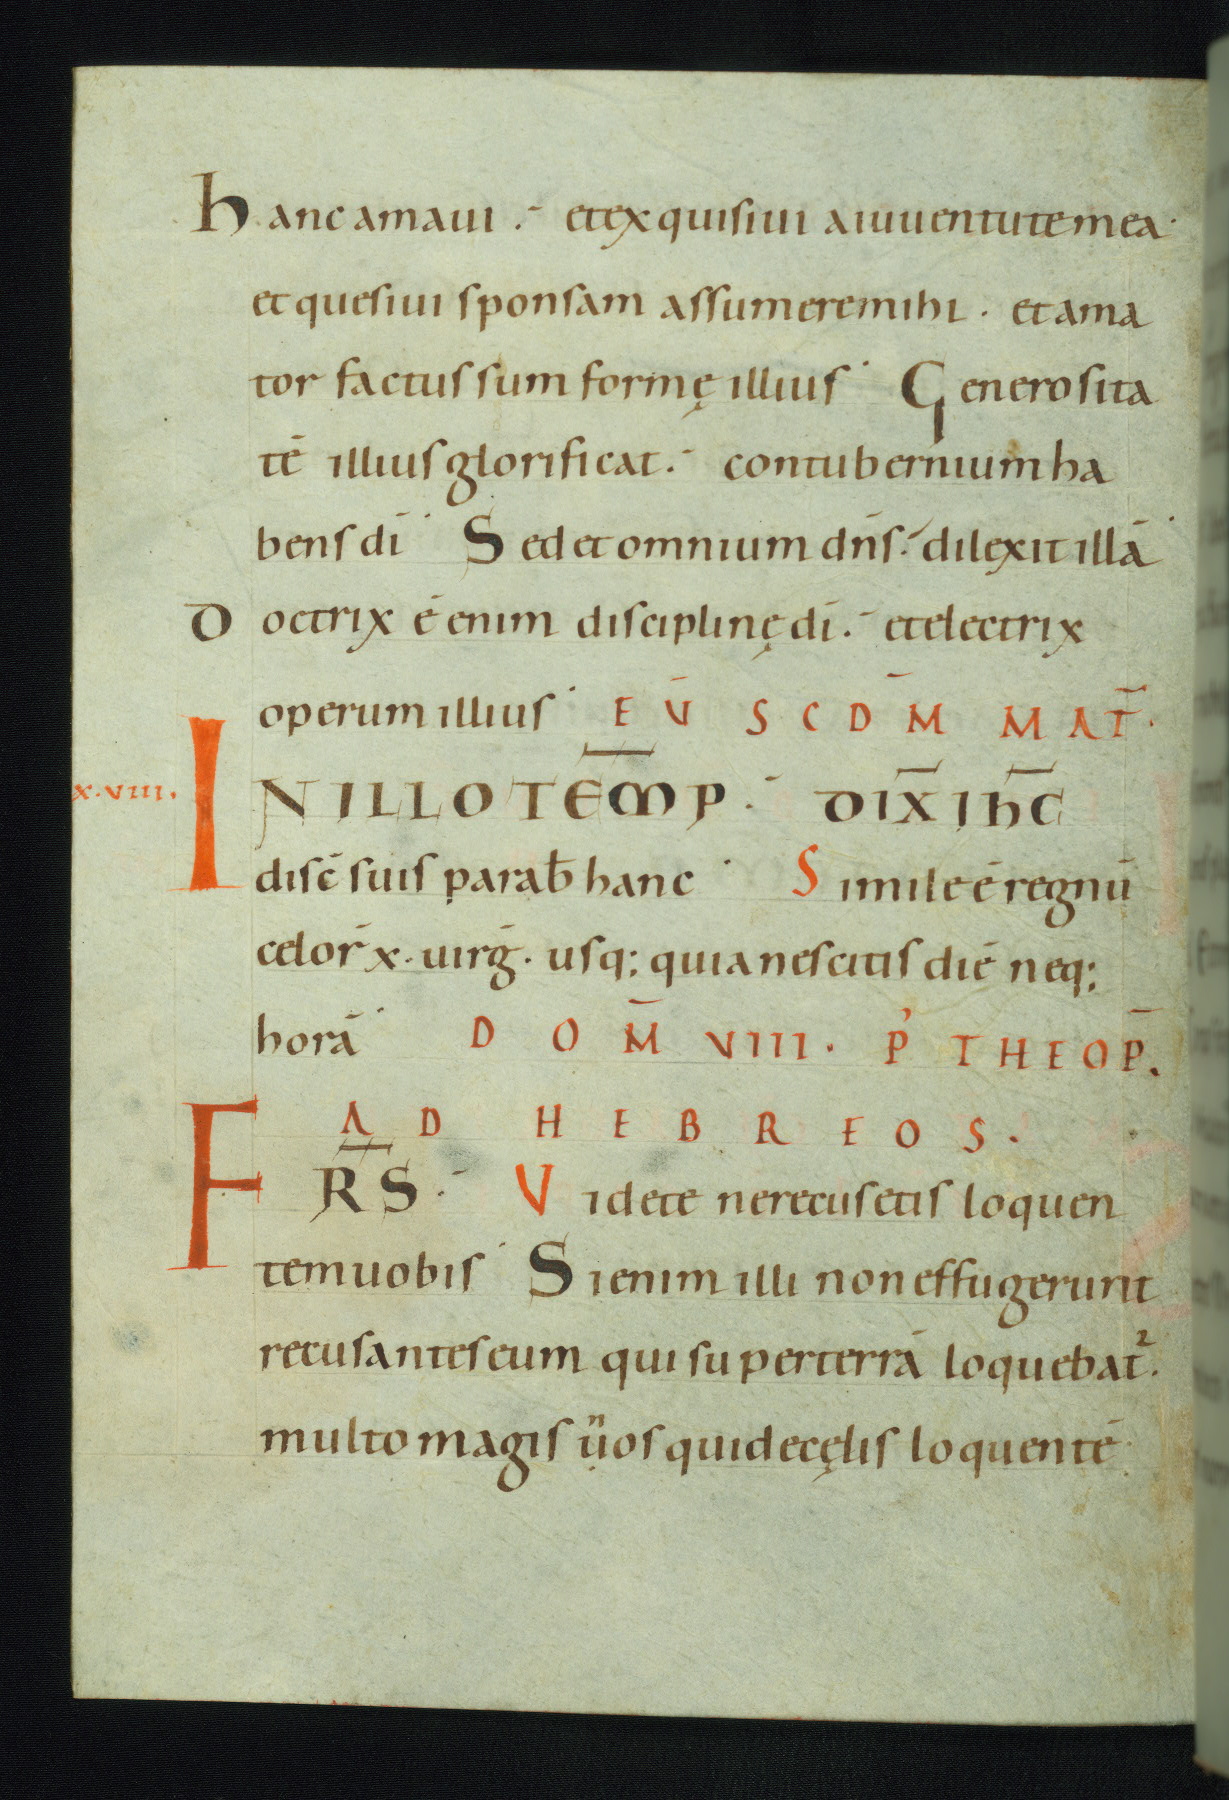 hanc amaui .- et exquisiui a iuuentute mea.
et quesiui sponsam assumere mihi . et ama
tor factus sum formę illius. Generosita
tē illius glorificat .- contubernium ha
bens dī. Sed et omnium dn̄s .- dilexit illā.
Doctrix ē enim disciplinę dī .- et electrix
operum illius. EV̄ SCDM̄ MAT̄.
x.viiii. IN ILLO TEMP̄ .- DIX̄ IH̄C
disc̄ suis parab̄ hanc. Simile ē regnū
celor̄ x. uirḡ. usq; quia nescitis diē neq;
horā. DOM̄ VIIII. P' THEOP̄.
AD HEBREOS.
FR̄S .- Videte ne recusetis loquen
tem uobis. Si enim illi non effugerunt
recusantes eum qui super terrā loquebat̄².
multo magis ūos qui de cęlis loquentē